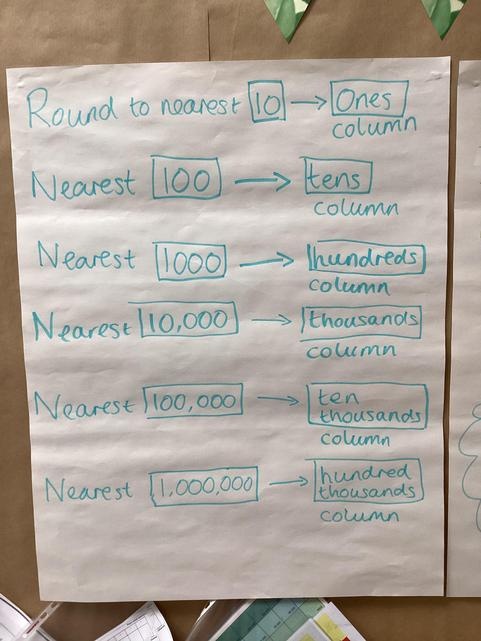 Round to nearest 10 → Ones
column
Nearest 100 → tens
column
Nearest 1000 → hundreds
column
Nearest 10,000 → thousands
column
Nearest 100,000 → ten
thousands
column
Nearest 1,000,000 → hundred
thousands
column